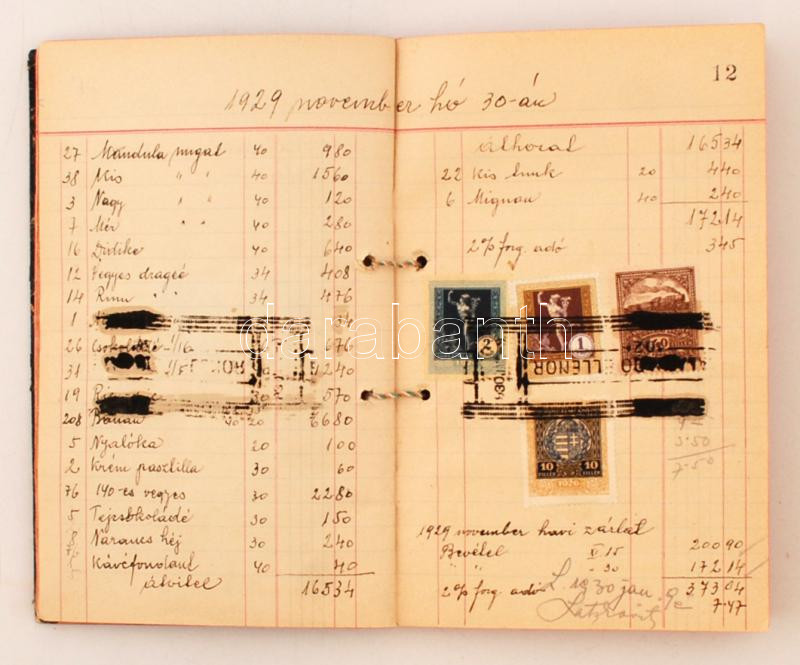 12
1929 november hó 30-án
27 Mandula nugat 40 980
38 Kis " " 40 1560
3 Nagy " " 40 120
7 Mér " " 40 280
16 40 640
12 Vegyes drageé 34 408
14 Rum " " 34 476
1 34
26 Csokoládé 1/16 676
31 1240
19 570
208 Banán 6680
5 Nyalóka 20 100
2 Krém pasztilla 30 60
76 140-es vegyes 30 2280
5 Tejcsokoládé 30 150
8 Narancs héj 30 240
Kávéfondant 40 40
átvitel 16534
áthozat 16534
22 Kis 20 440
6 Mignon 40 240
17214
2% forg. adó 345
2
1
ELLENOR
10 FILLÉR 10 FILLÉR
1926
9
3.50
7.50
1929 november havi zárlat
Bevétel 15 20090
" " - 30 17214
37304
2% forg. adó 7.47
L. 1930 jan. 9
darabanth